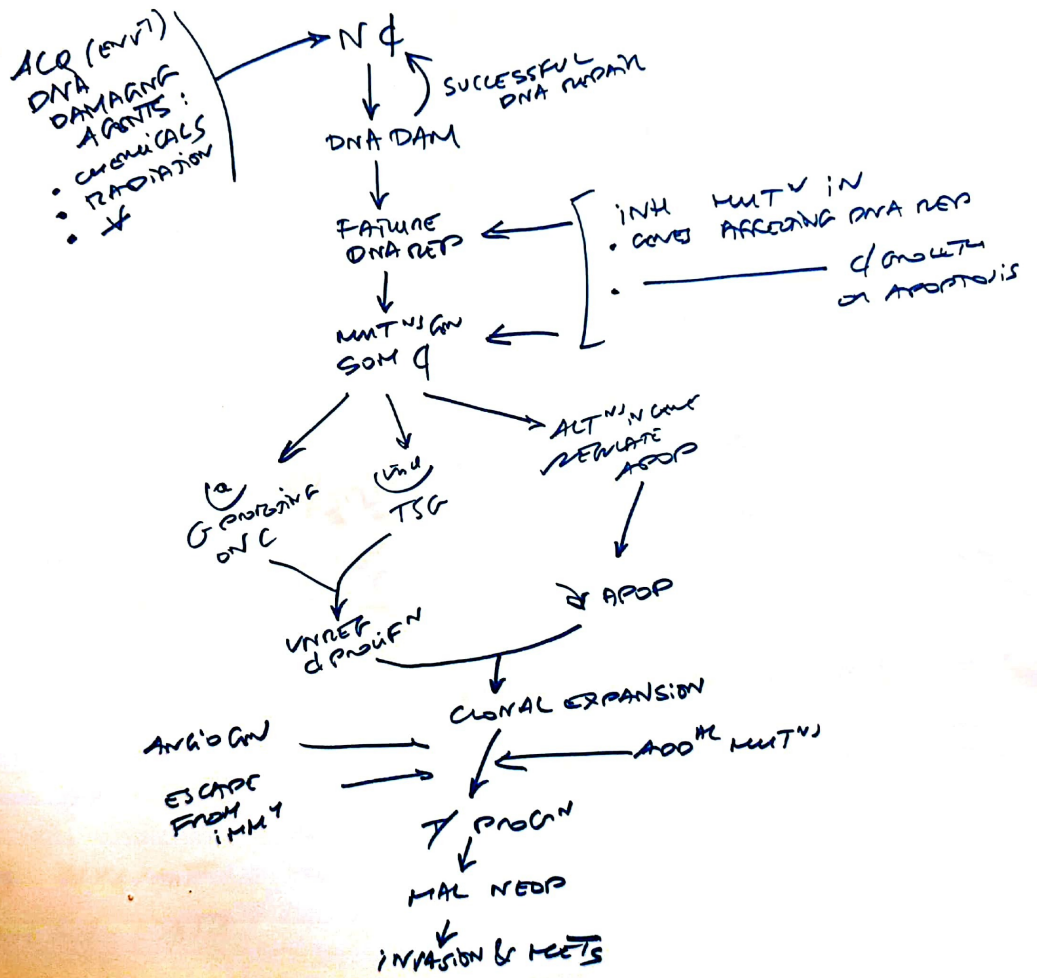 ACQ (ENVT)
DNA
DAMAGING
AGENTS:
• CHEMICALS
• RADIATION
•
N ₵
SUCCESSFUL
DNA REPAIR
DNA DAM
FAILURE
DNA REP
INH MUTN IN
• GENES AFFECTING DNA REP
• ———— ₵ GROWTH
OR APOPTOSIS
MUTNS IN
SOM ₵
G PROMOTING
ONC
INH
TSG
ALTNS IN GENES
REGULATE
APOP
UNREG
₵ PROLIFN
APOP
CLONAL EXPANSION
ANGIOGN
ADDAL MUTNS
ESCAPE
FROM
IMMY
T/ PROGN
MAL NEOP
INVASION & METS